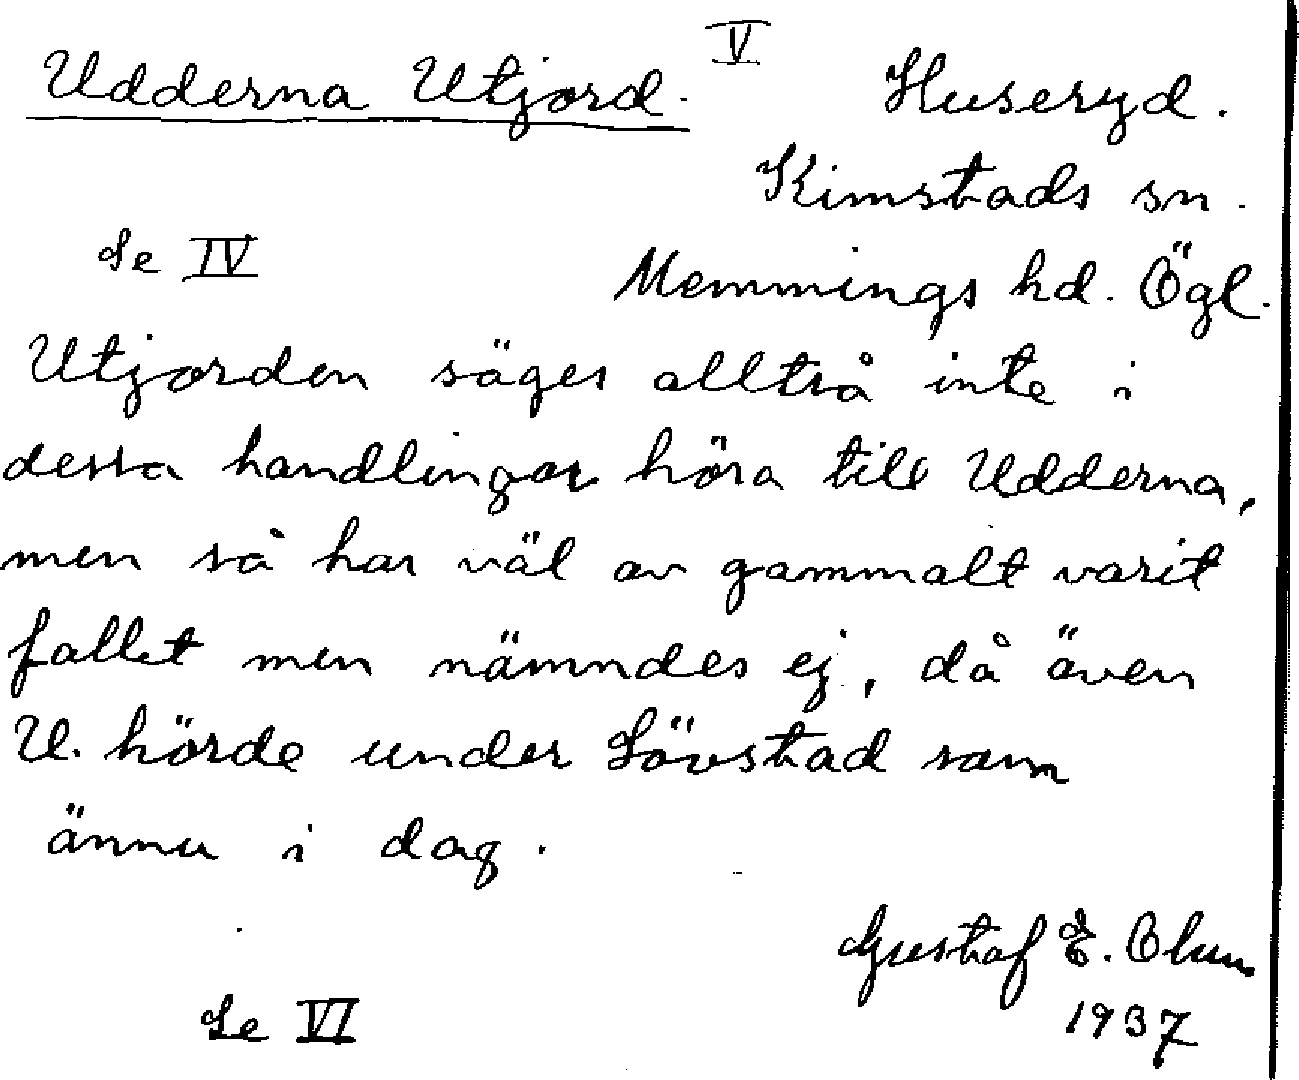 Udderna Utjord. V Huseryd.
Kimstads sn.
Se IV Memmings hd. Ögl.
Utjorden säges alltså inte i
dessa handlingar höra till Udderna,
men så har väl av gammalt varit
fallet men nämndes ej, då även
U. hörde under Lövstad som
ännu i dag.
Gustaf E. Olun
Se VI 1937